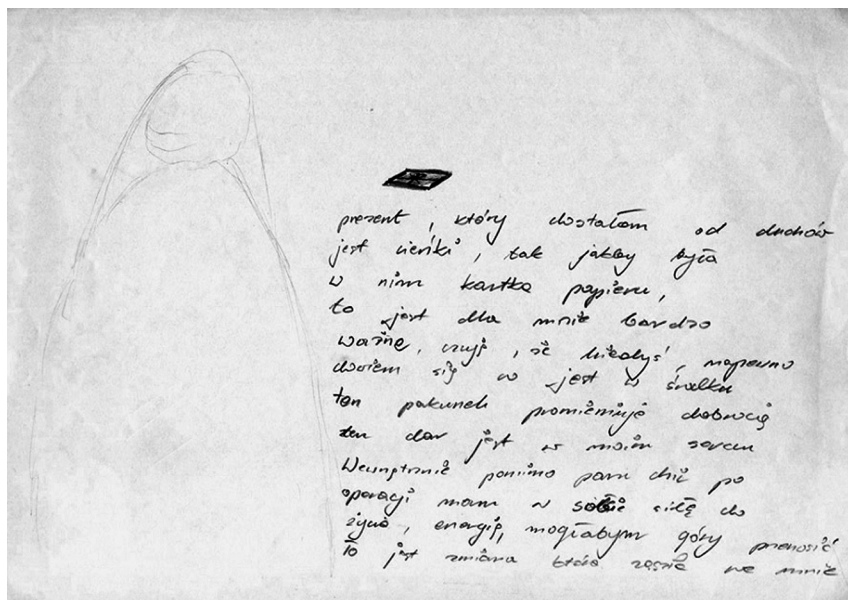 prezent, który dostałam od duchów
jest cieńki, tak jakby była
w nim kartka papieru,
to jest dla mnie bardzo
ważne, czuję, że kiedyś, napewno
dowiem się co jest w środku
ten pakunek promieniuje dobrocią
ten dar jest w moim sercu
Wewnętrznie pomimo paru dni po
operacji mam w sobie siłę do
życia, energię, mogłabym góry przenosić
To jest zmiana która zaszła we mnie